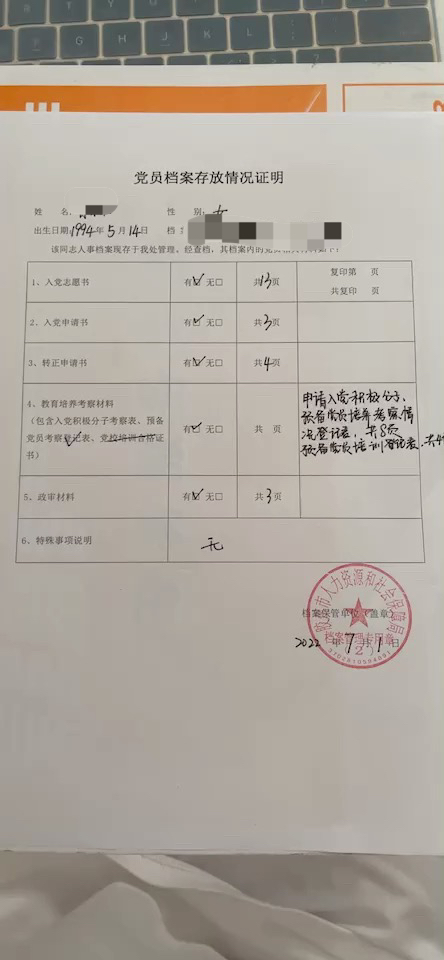 党员档案存放情况证明
姓 名: 性 别: 女
出生日期:1994年5月14日 档
该同志人事档案现存于我处管理。经查档,其档案内的党
1、入党志愿书 有☑ 无□ 共13页 复印第 页
共复印 页
2、入党申请书 有☑ 无□ 共3页
3、转正申请书 有☑ 无□ 共4页
4、教育培养考察材料
(包含入党积极分子考察表、预备
党员考察登记表、党校培训合格证
书)
有☑ 无□ 共 页
申请入党积极分子、
预备党员培养考察情
况登记表,共8页
预备党员培训登记表,共4
5、政审材料 有☑ 无□ 共3页
6、特殊事项说明 无
档案保管单位(盖章)
2022年7月1日
市人力资源和社会保障局
档案管理专用章
(2)